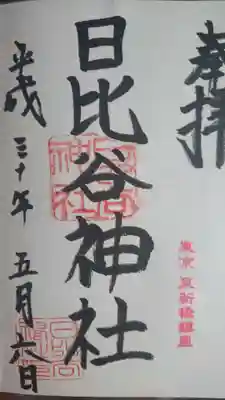 奉拝
日比谷神社
平成三十年五月六日
東京 東新橋鎮座